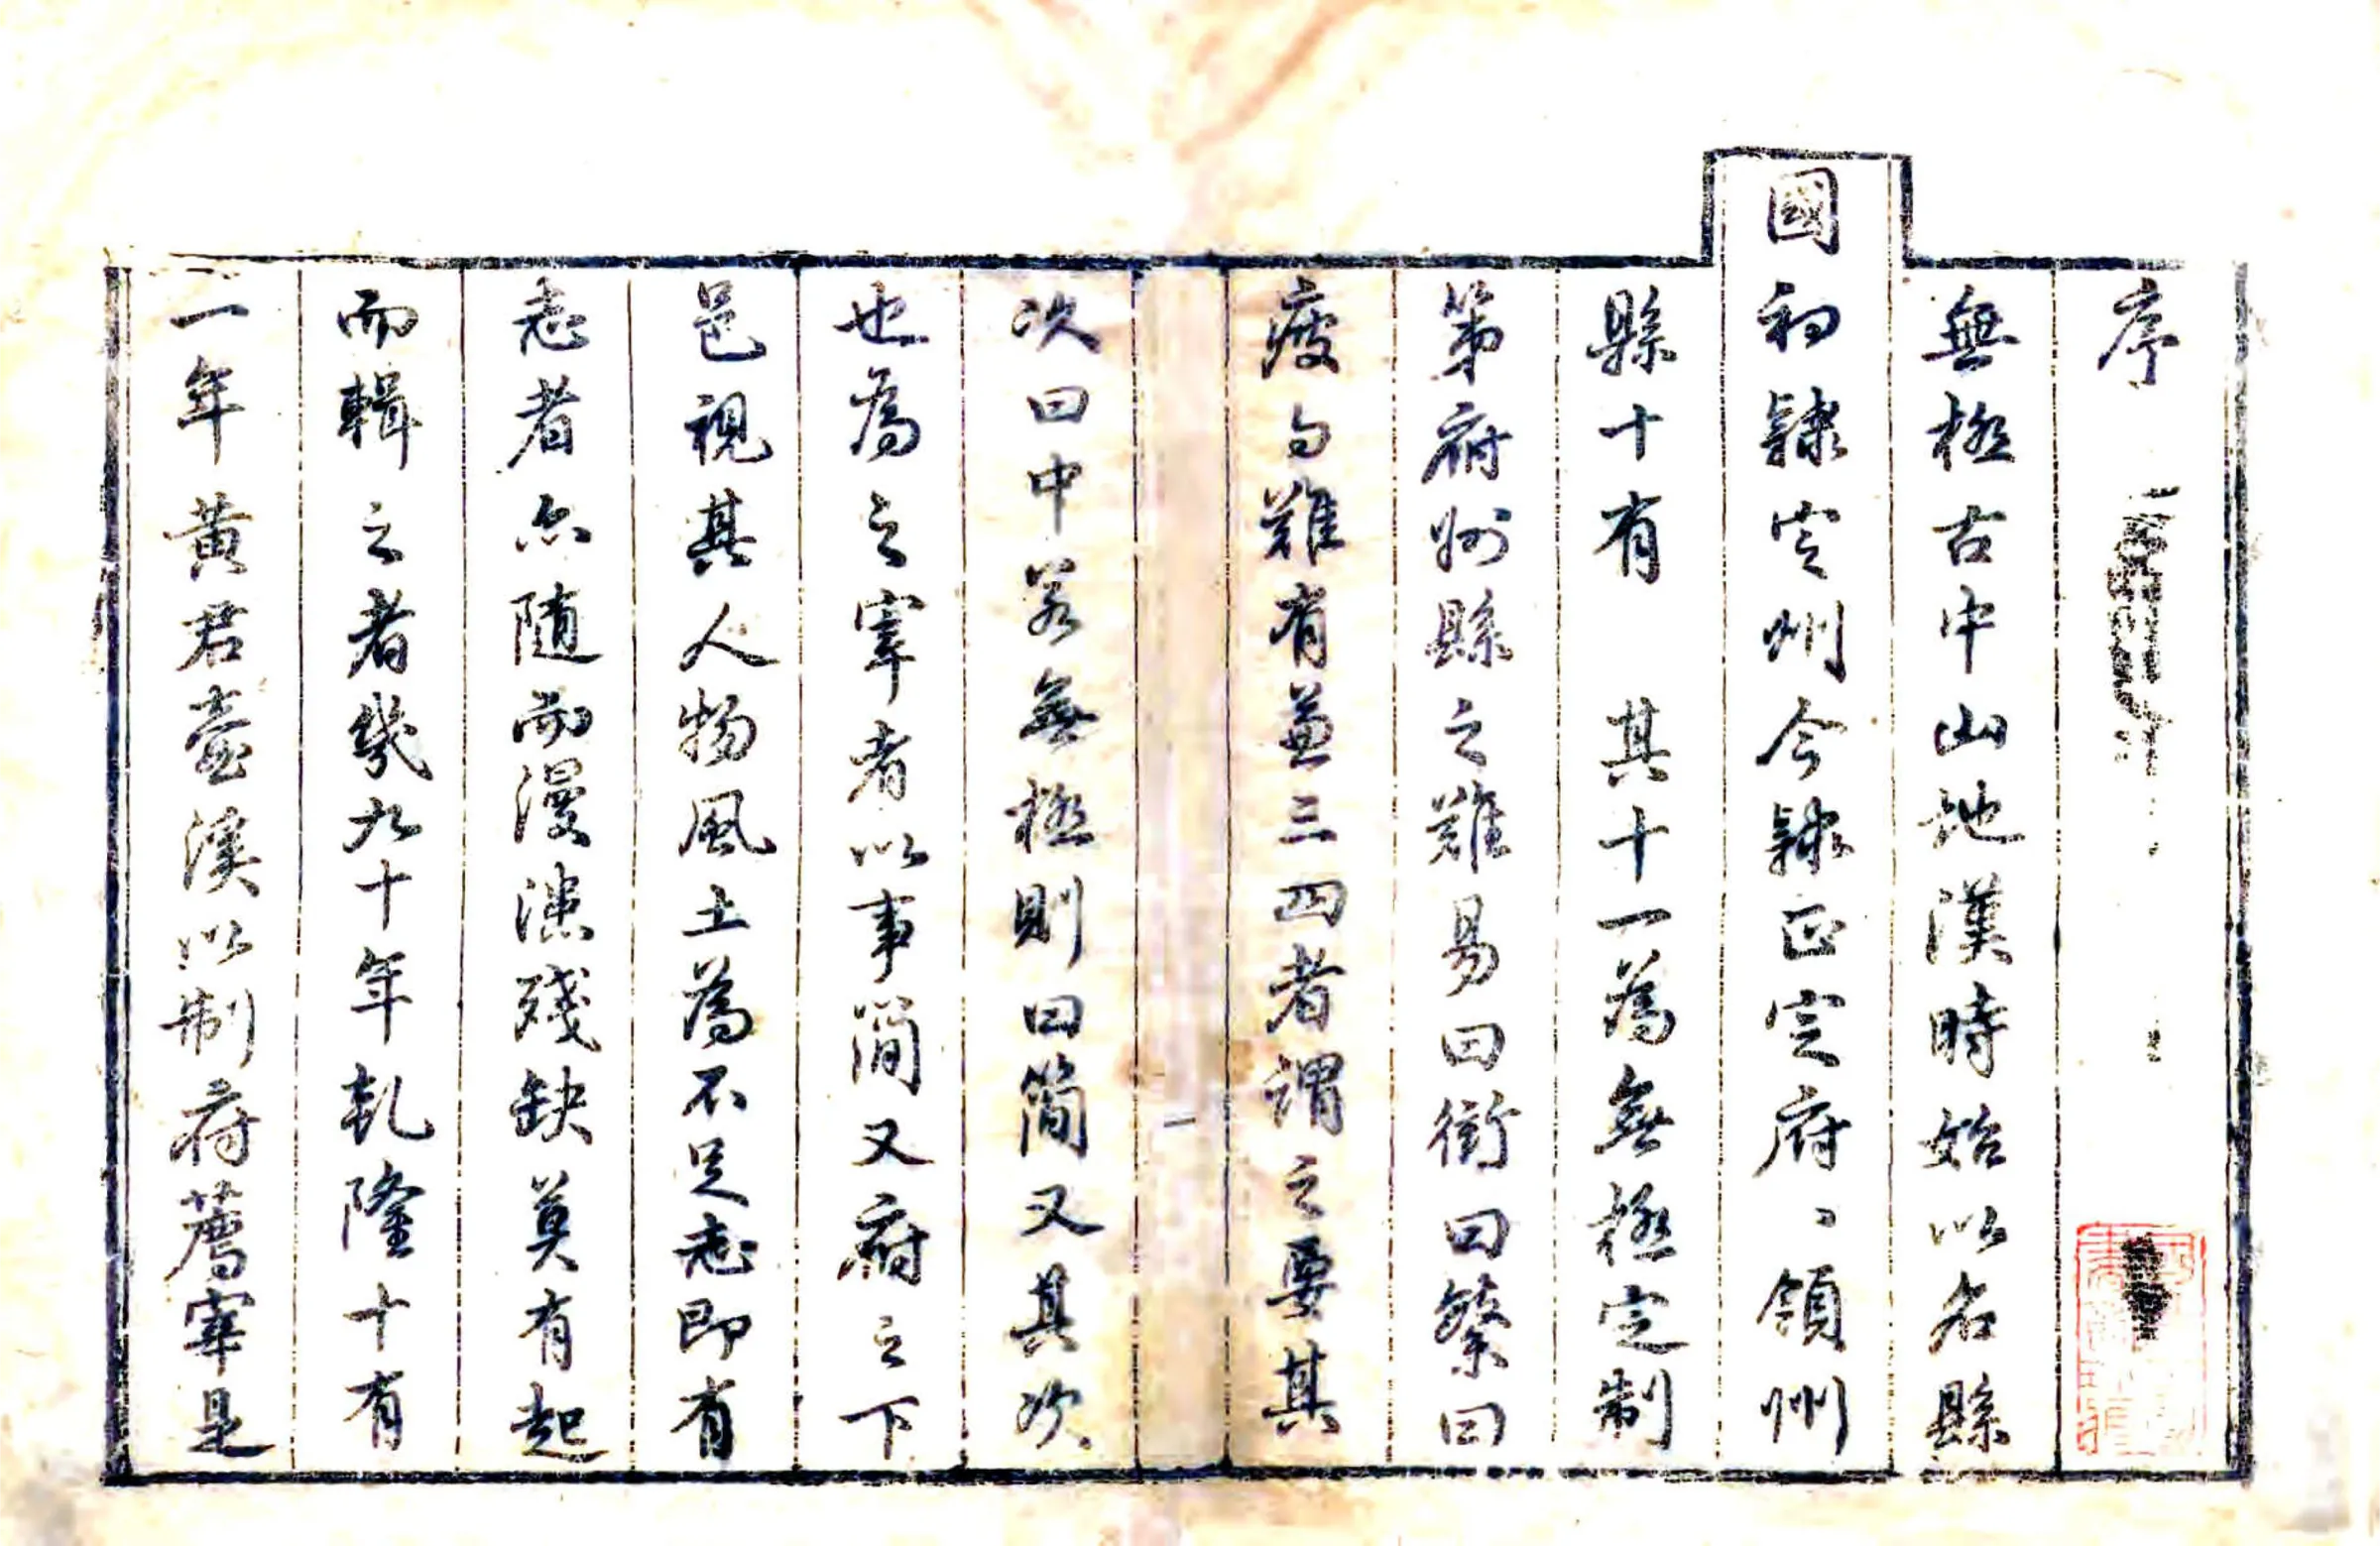 序
無極古中山地漢時始以名縣
國初隸定州今隸正定府、領州
縣十有 其十一為無極定制
第府州縣之難易曰衝曰繁曰
疲曰難有兼三四者謂之要其
次曰中若無極則曰簡又其次
也為之宰者以事簡又府之下
邑視其人物風土為不足志即有
志者亦隨而漫漶殘缺莫有起
而輯之者幾九十年乹隆十有
一年黃君壼溪以制府薦宰是